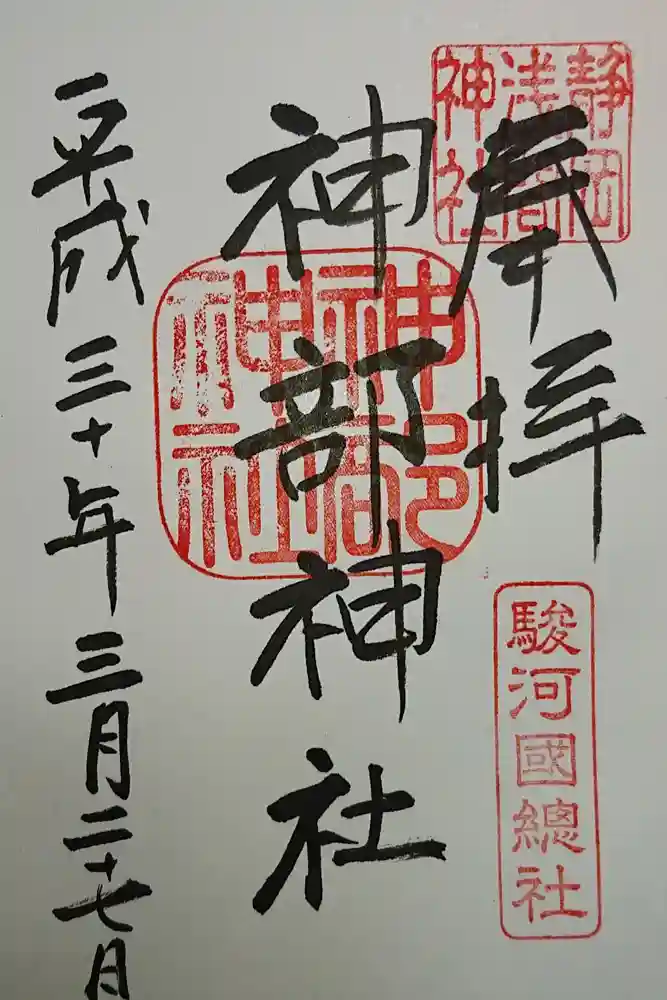 奉拝
静岡
浅間
神社
駿河國總社
神部神社
神部
神社
平成三十年三月二十七日